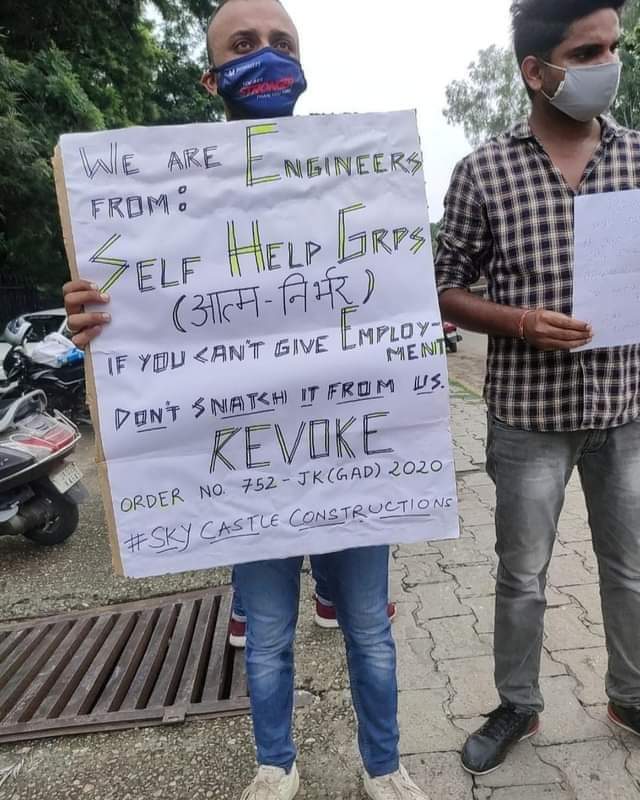 STRONGER
WE ARE ENGINEERS
FROM:
SELF HELP GRPS
(आत्म-निर्भर)
IF YOU CAN'T GIVE EMPLOY-
MENT
DON'T SNATCH IT FROM US.
REVOKE
ORDER NO. 752-JK(GAD) 2020
#SKY CASTLE CONSTRUCTIONS